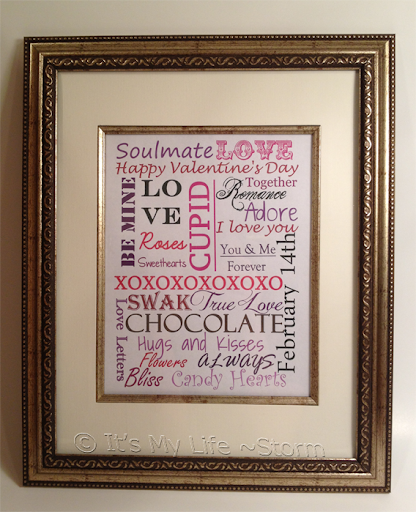 Soulmate LOVE
Happy Valentine's Day
BE MINE
LO
VE
CUPID
Together
Romance
Adore
I love you
Roses
Sweethearts
You & Me
Forever
February 14th
XOXOXOXOXOXO
Love Letters
SWAK True Love
CHOCOLATE
Hugs and Kisses
Flowers ALWAYS
Bliss Candy Hearts
© It's My Life ~Storm